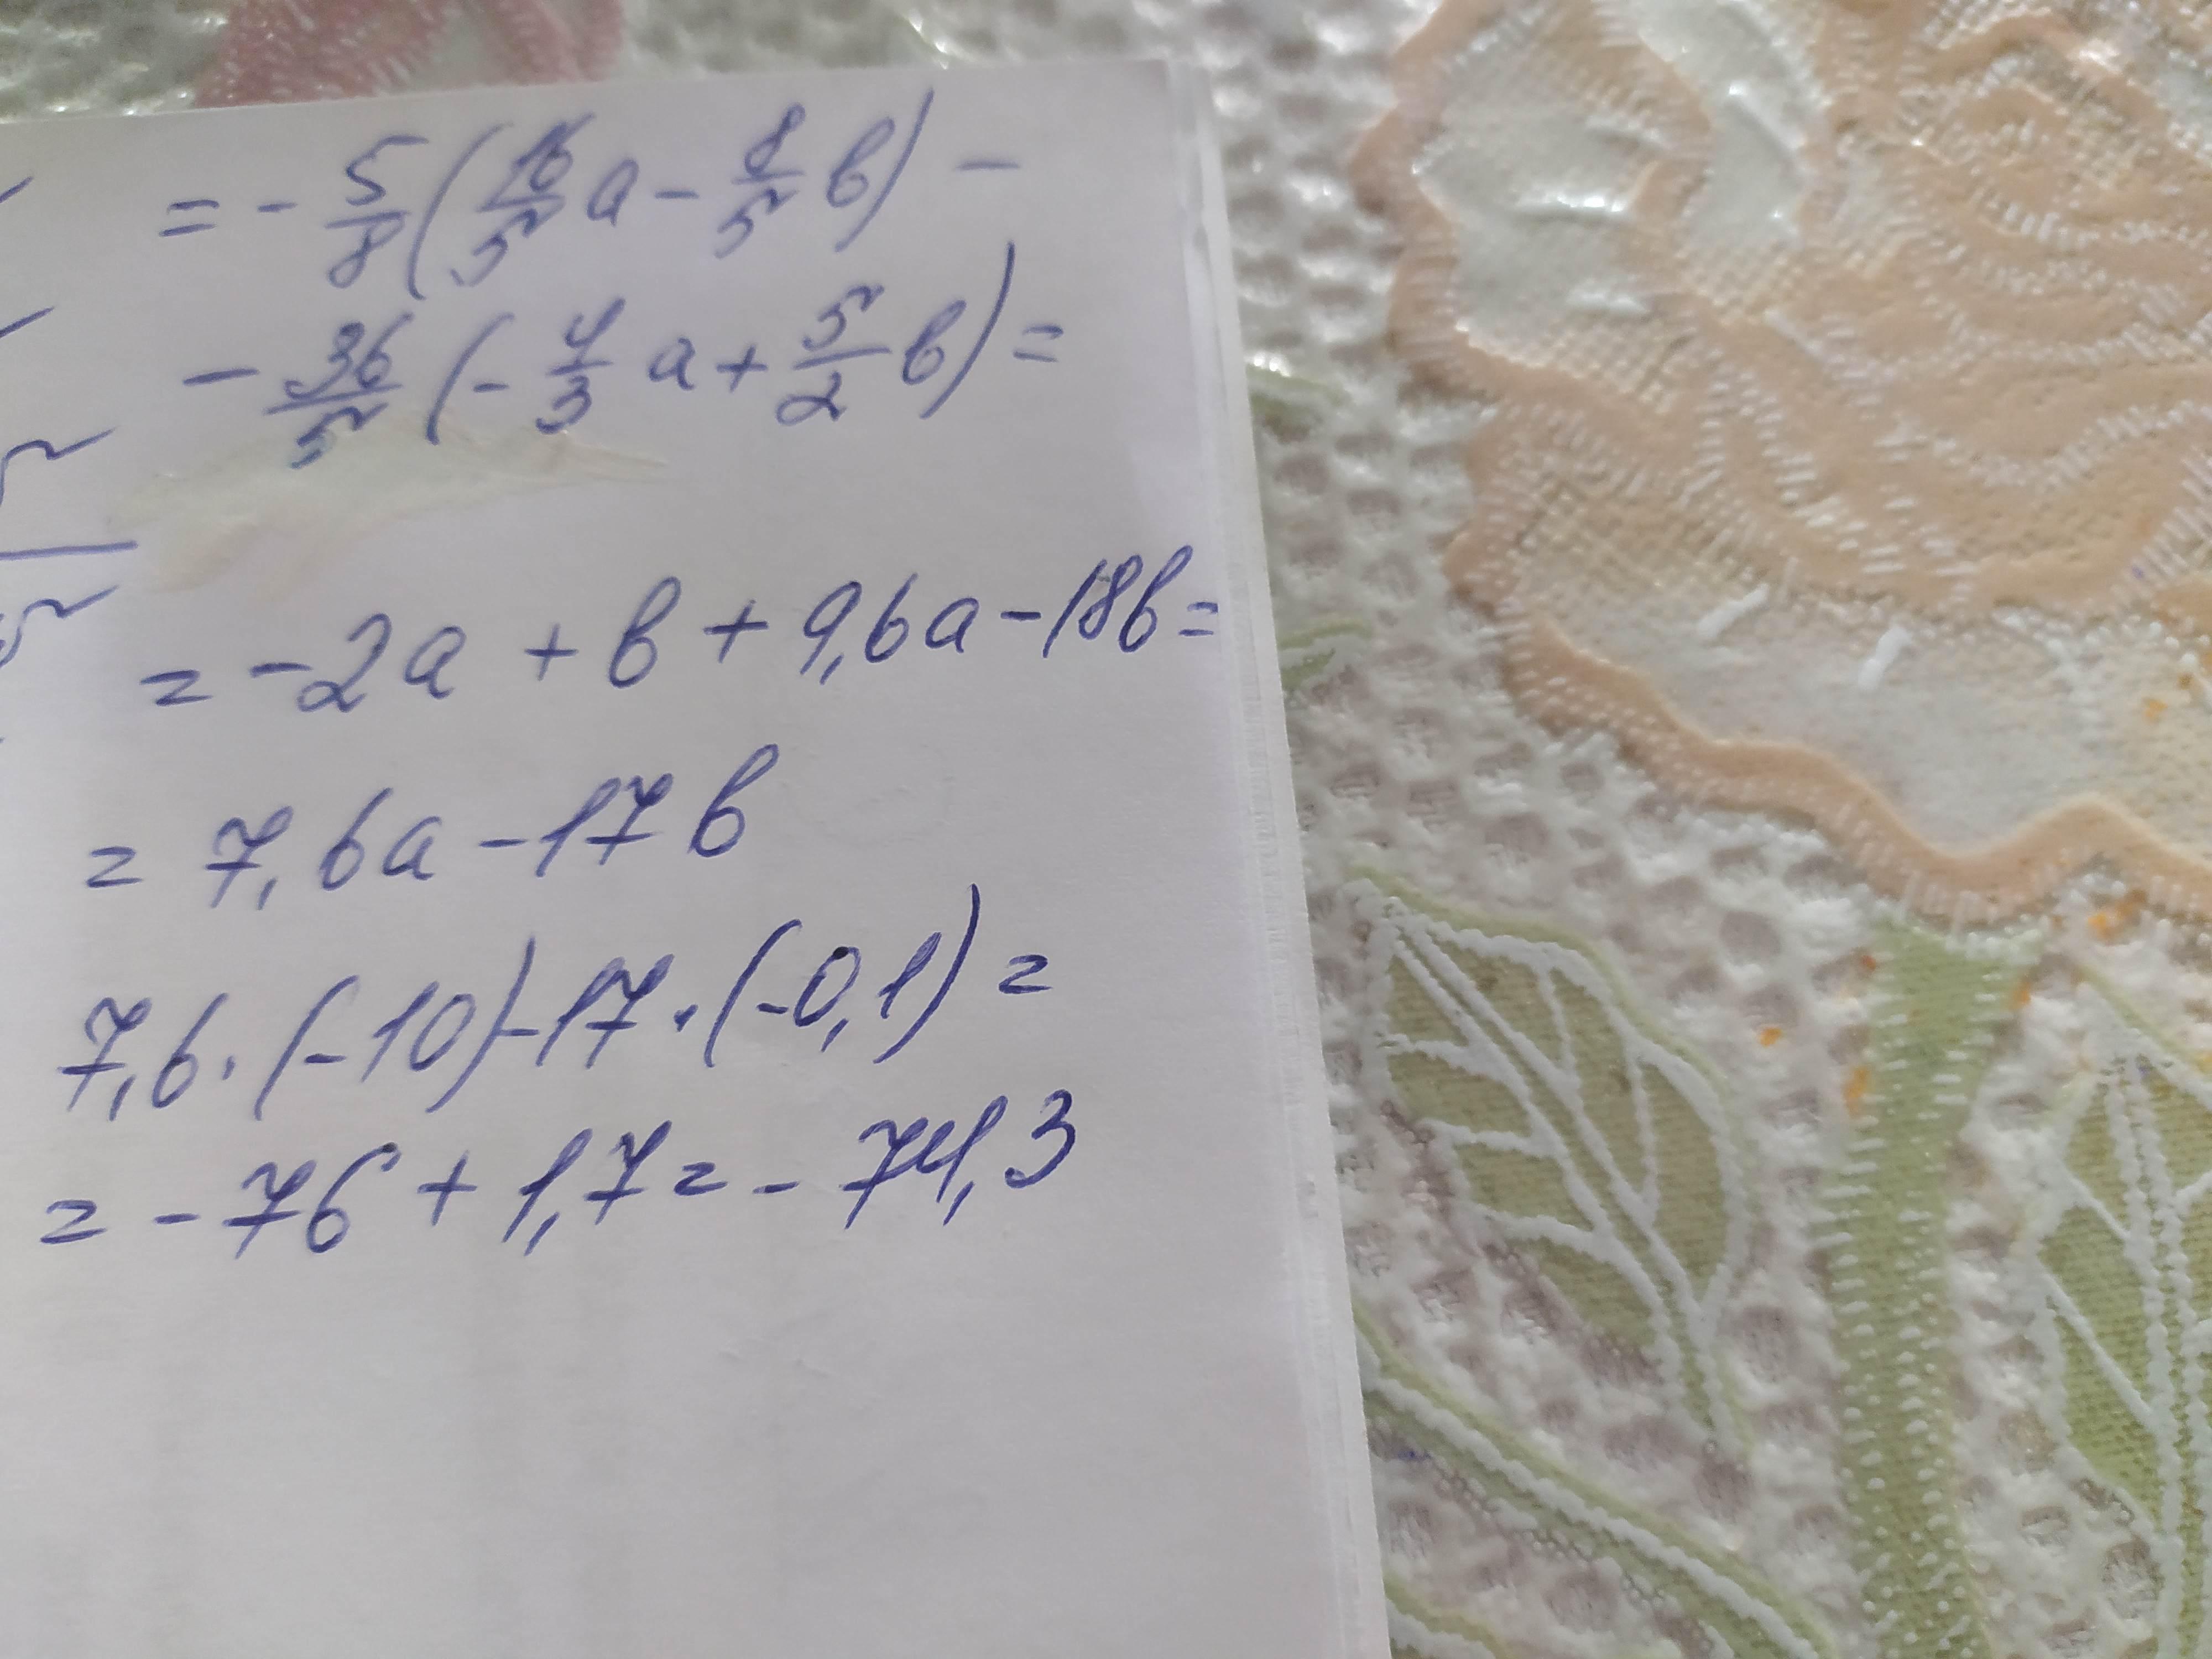 = - 5/8 (16/5 a - 8/5 b) -
- 36/5 (- 4/3 a + 5/2 b) =
= -2a + b + 9,6a - 18b =
= 7,6a - 17b
7,6 · (-10) - 17 · (-0,1) =
= - 76 + 1,7 = - 74,3